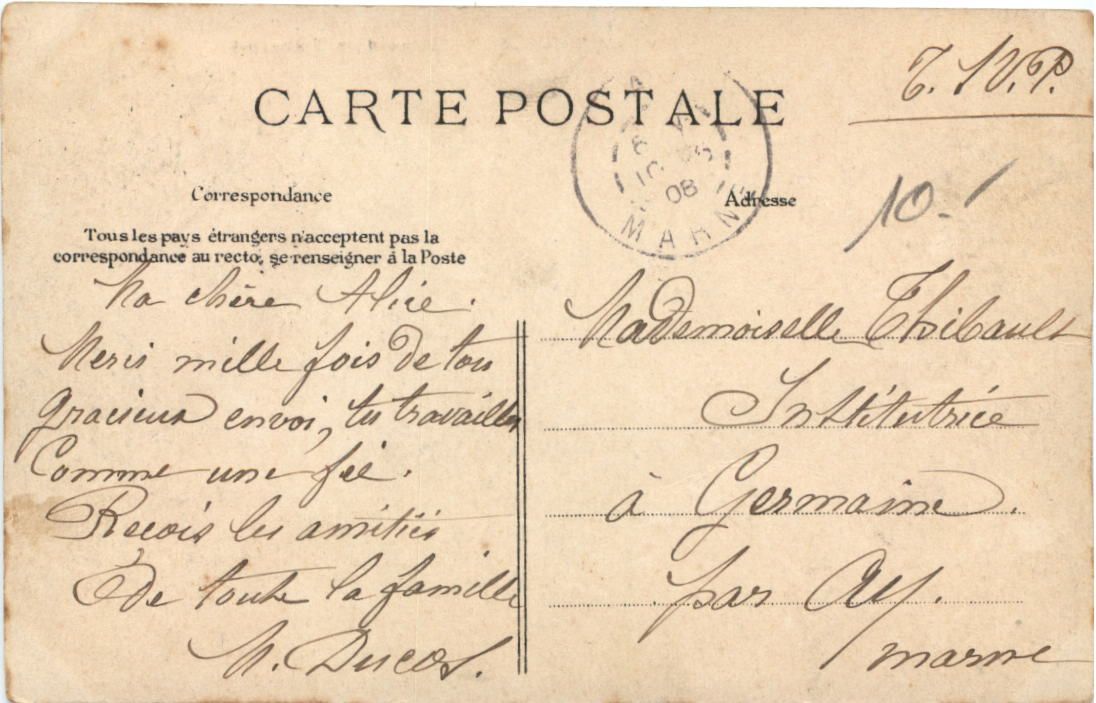 T. S. V. P.
CARTE POSTALE
10.-
Correspondance
Adresse
Tous les pays étrangers n'acceptent pas la
correspondance au recto, se renseigner à la Poste
MARNE
08
Ma chère Alice.
Merci mille fois de ton
gracieux envoi, tu travailles
Comme une fée.
Reçois les amitiés
De toute la famille
M. Ducos.
Mademoiselle Thibault
Institutrice
à Germaine.
par Ay.
marne